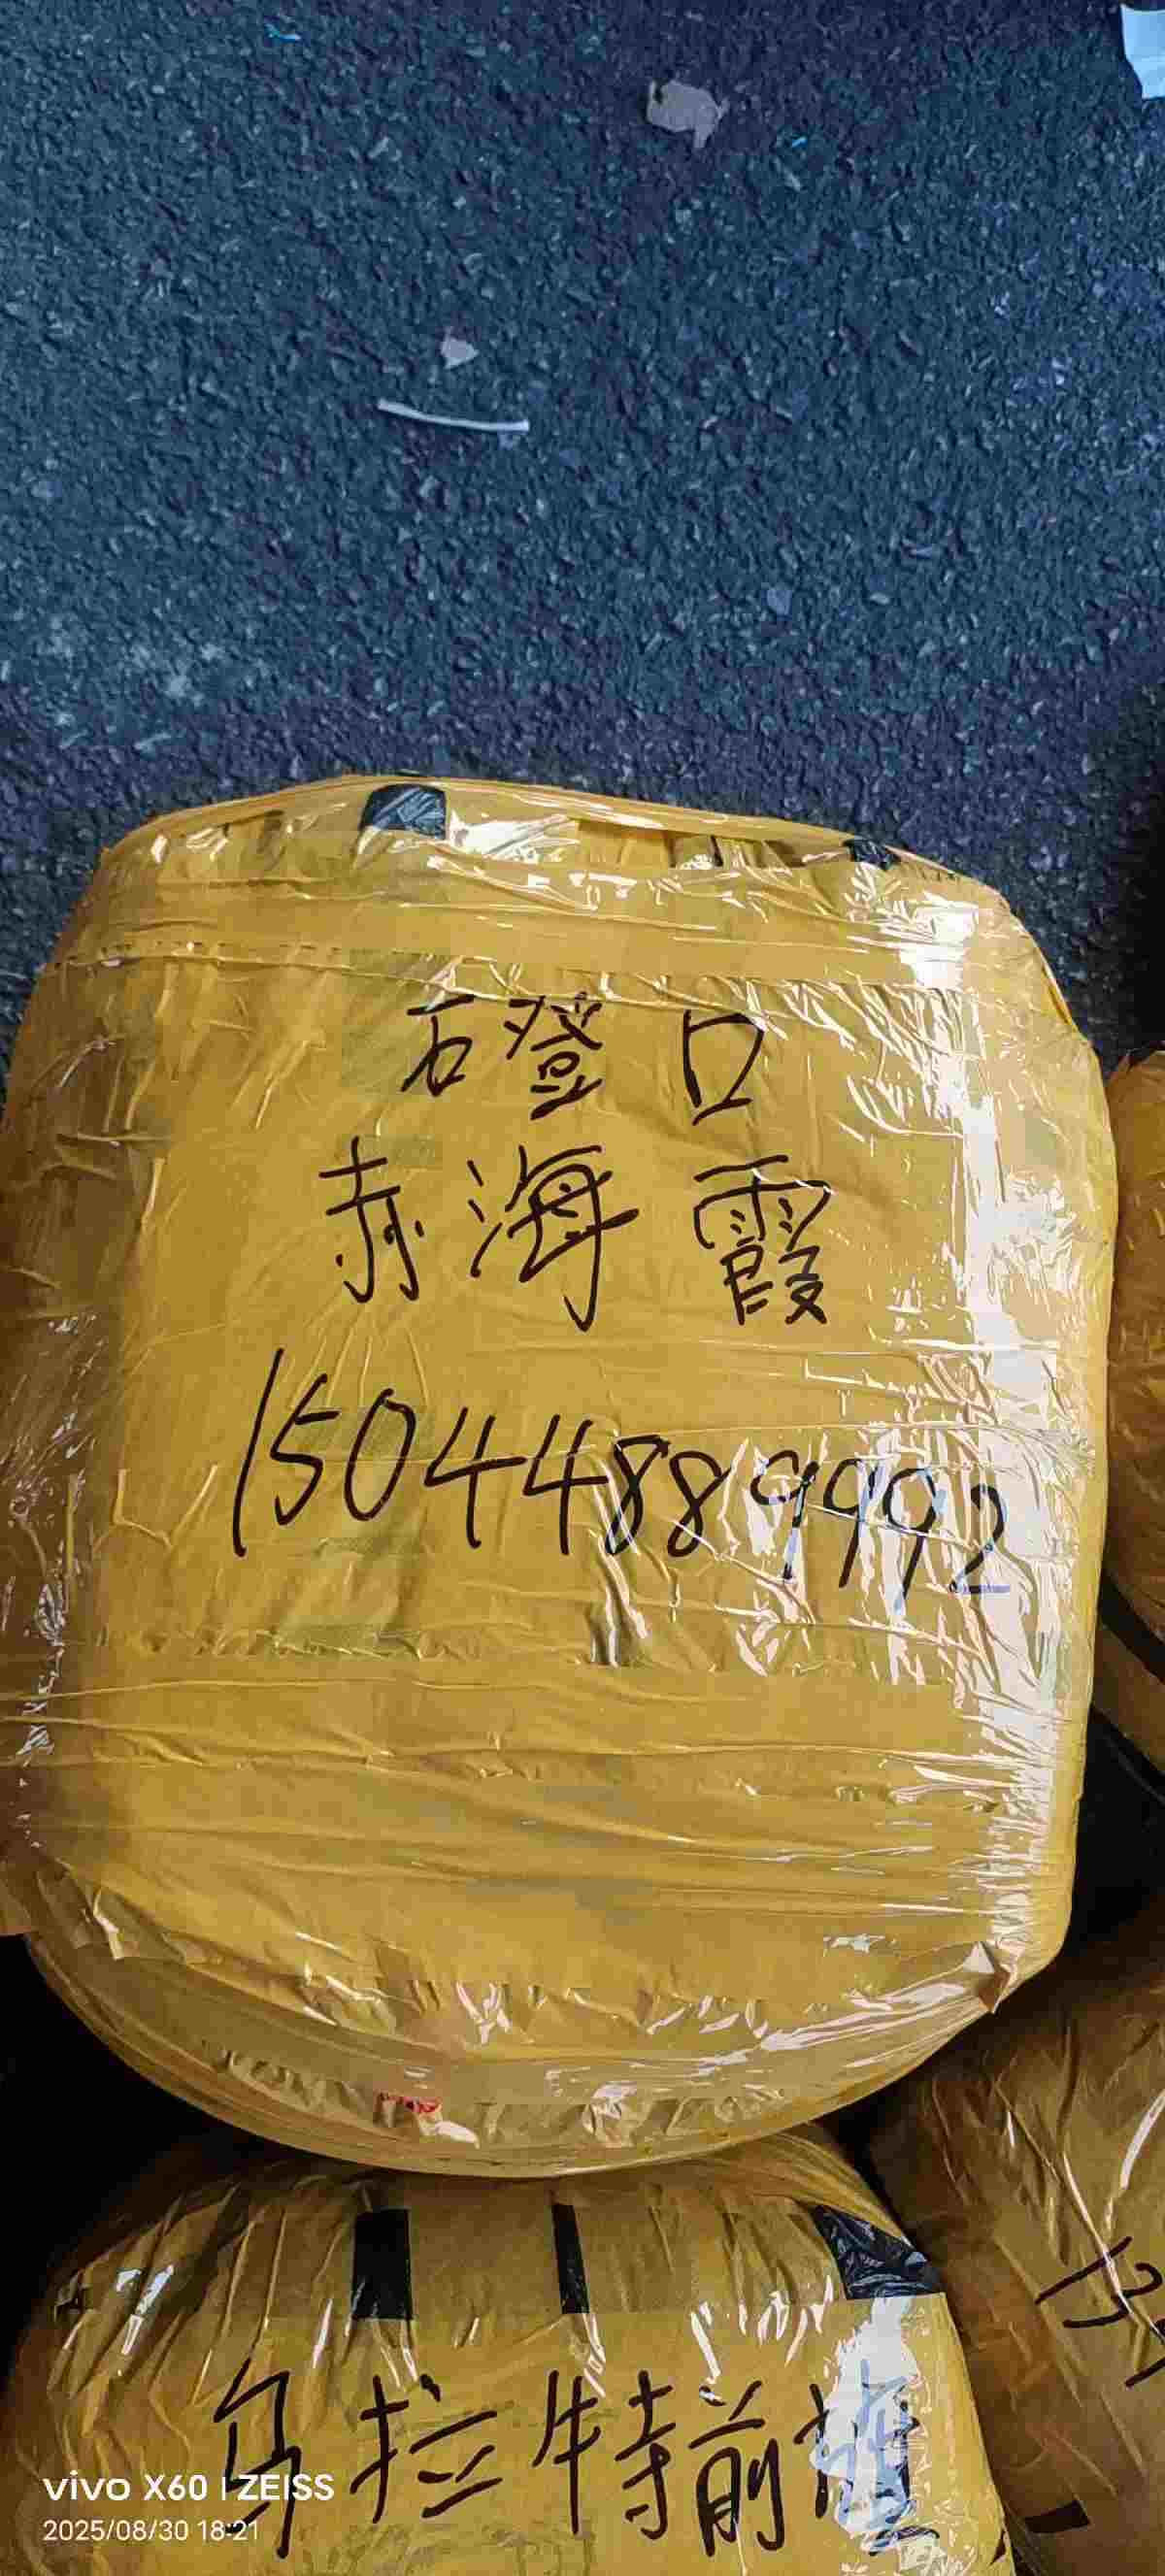 磴口
赤海霞
15044889992
乌拉特前旗
vivo X60 | ZEISS
2025/08/30 18:21